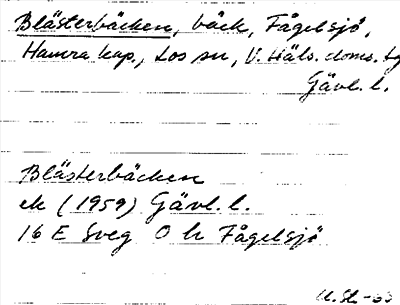 Blästerbäcken, bäck, Fågelsjö,
Hamra kap., Los sn, V. Häls. doms. tg
Gävl. l.
Blästerbäcken
ek (1959) Gävl. l.
16 E Sveg O h Fågelsjö
U. St. -63